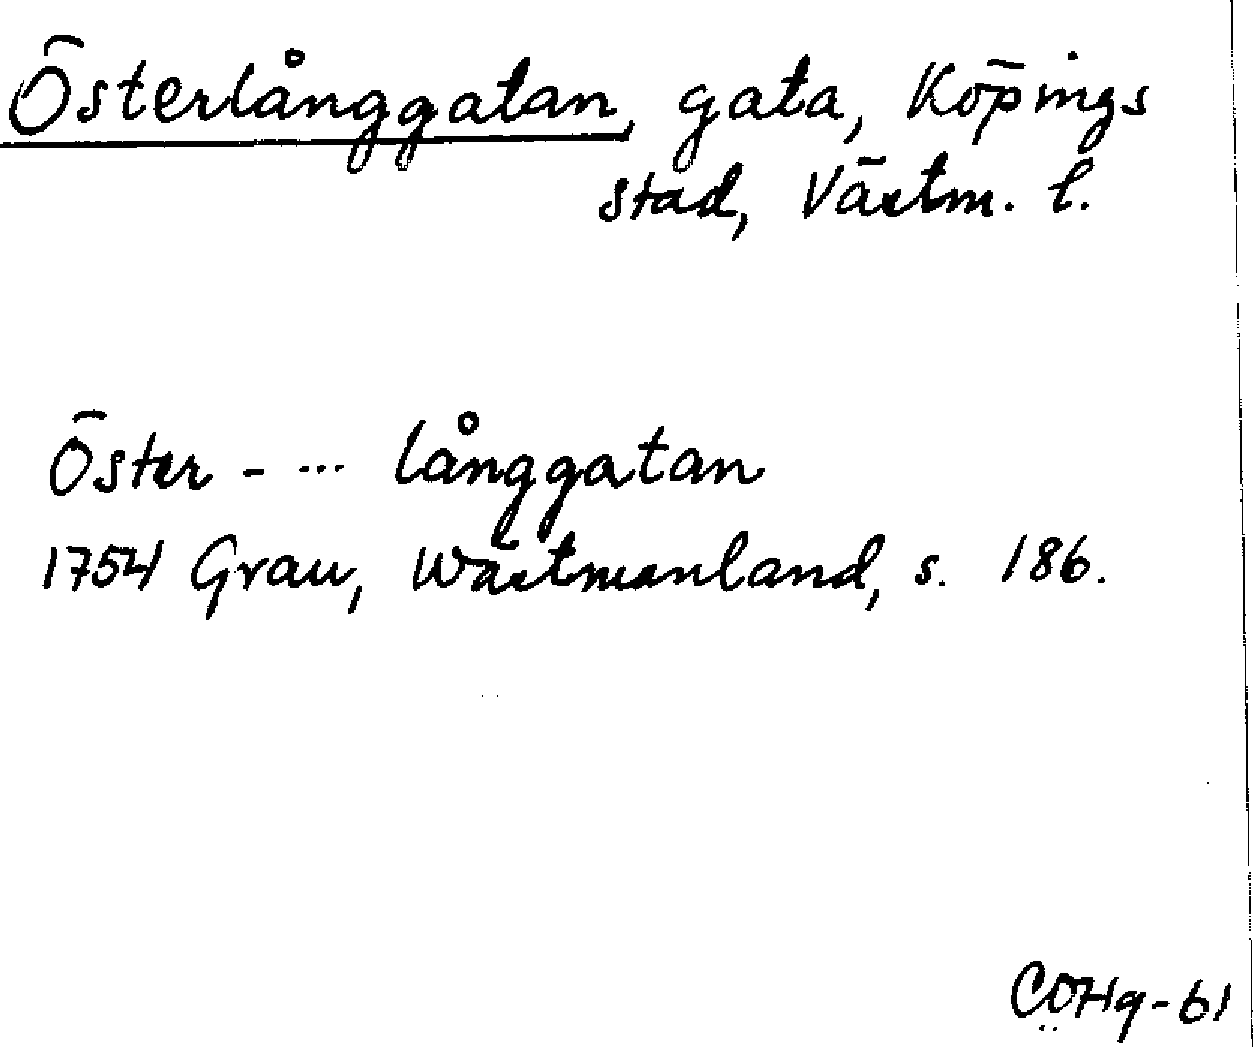 Österlånggatan, gata, Köpings
stad, Västm. l.
Öster - ... långgatan
1754 Grau, Wästmanland, s. 186.
COHq-61